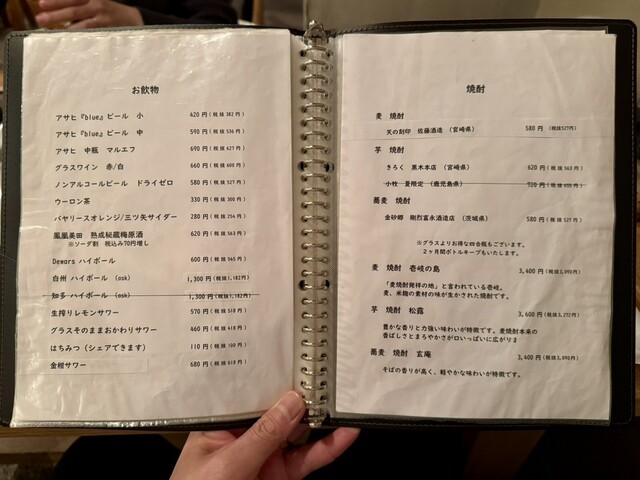 お飲物
アサヒ『blue』ビール 小 420円(税抜382円)
アサヒ『blue』ビール 中 590円(税抜536円)
アサヒ 中瓶 マルエフ 690円(税抜627円)
グラスワイン 赤/白 660円(税抜600円)
ノンアルコールビール ドライゼロ 580円(税抜527円)
ウーロン茶 330円(税抜300円)
バヤリースオレンジ/三ツ矢サイダー 280円(税抜254円)
鳳凰美田 熟成秘蔵梅原酒 620円(税抜563円)
※ソーダ割 税込み70円増し
Dewars ハイボール 600円(税抜545円)
白州 ハイボール (ask) 1,300円(税抜1,182円)
知多 ハイボール (ask) 1,300円(税抜1,182円)
生搾りレモンサワー 570円(税抜518円)
グラスそのままおかわりサワー 460円(税抜418円)
はちみつ(シェアできます) 110円(税抜100円)
金柑サワー 680円(税抜618円)
焼酎
麦 焼酎
天の刻印 佐藤酒造 (宮崎県) 580円(税抜527円)
芋 焼酎
きろく 黒木本店 (宮崎県) 620円(税抜563円)
小牧 夏限定 (鹿児島県) 520円
蕎麦 焼酎
金砂郷 剛烈富永酒造店 (茨城県) 580円(税抜527円)
※グラスよりお得な四合瓶もございます。
2ヶ月間ボトルキープもいたします。
麦 焼酎 壱岐の島 3,400円(税抜3,090円)
「麦焼酎発祥の地」と言われている壱岐。
麦、米麹の素材の味が生かされた焼酎です。
芋 焼酎 松露 3,600円(税抜3,272円)
豊かな香りと力強い味わいが特徴です。麦焼酎本来の
香ばしさとまろやかさが口いっぱいに広がりま
蕎麦 焼酎 玄庵 3,400円(税抜3,090円)
そばの香りが高く、軽やかな味わいが特徴です。